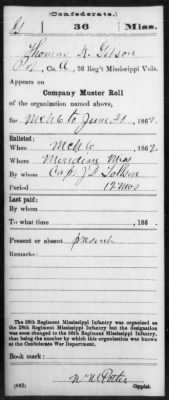 (Confederate.)
G 36 Miss.
Thomas
Pvt, Co. A, 36 Reg't Mississippi Vols.
Appears on
Company Muster Roll
of the organization named above,
for Mch 6 to June 30, 1862.
Enlisted:
When Mch 6, 1862.
Where Meridian Miss
By whom Capt J D
Period 12 mos
Last paid:
By whom
To what time , 186 .
Present or absent present
Remarks:
The 36th Regiment Mississippi Infantry was organized as
the 28th Regiment Mississippi Infantry but the designation
was soon changed to the 36th Regiment Mississippi Infantry,
that being the number by which this organization was known
at the Confederate War Department.
Book mark:
(642) Copyist.